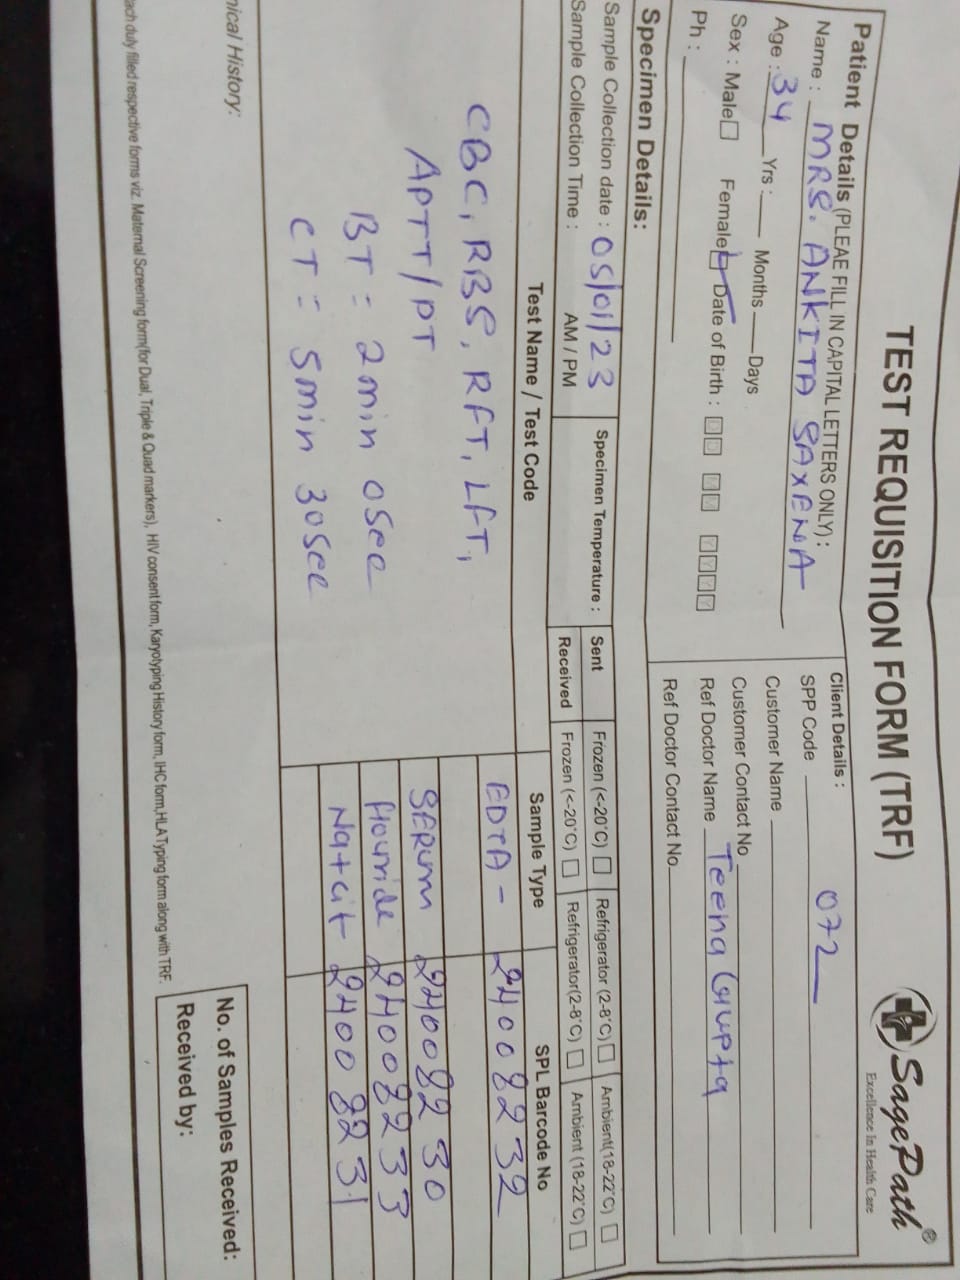 TEST REQUISITION FORM (TRF)
SagePath®
Excellence In Health Care
Patient Details (PLEAE FILL IN CAPITAL LETTERS ONLY) :
Name : MRS. ANKITA SAXENA
Age : 34 Yrs : Months Days
Sex : Male Female Date of Birth : D D M M Y Y Y Y
Ph :
Client Details :
SPP Code 072
Customer Name
Customer Contact No
Ref Doctor Name Teena Gupta
Ref Doctor Contact No.
Specimen Details:
Sample Collection date : 05/01/23
Sample Collection Time : AM / PM
Specimen Temperature :
Sent Frozen (<-20°C) Refrigerator (2-8°C) Ambient(18-22°C)
Received Frozen (<-20°C) Refrigerator(2-8°C) Ambient (18-22°C)
Test Name / Test Code Sample Type SPL Barcode No
CBC, RBS, RFT, LFT, EDTA - 24008232
APTT/PT SERUM 24008230
BT : 2min 0Sec Flouride 24008233
CT : 5min 30Sec Na+cit 24008231
nical History:
No. of Samples Received:
Received by:
ach duly filled respective forms viz. Maternal Screening form(for Dual, Triple & Quad markers), HIV consent form, Karyotyping History form, IHC form,HLA Typing form along with TRF.